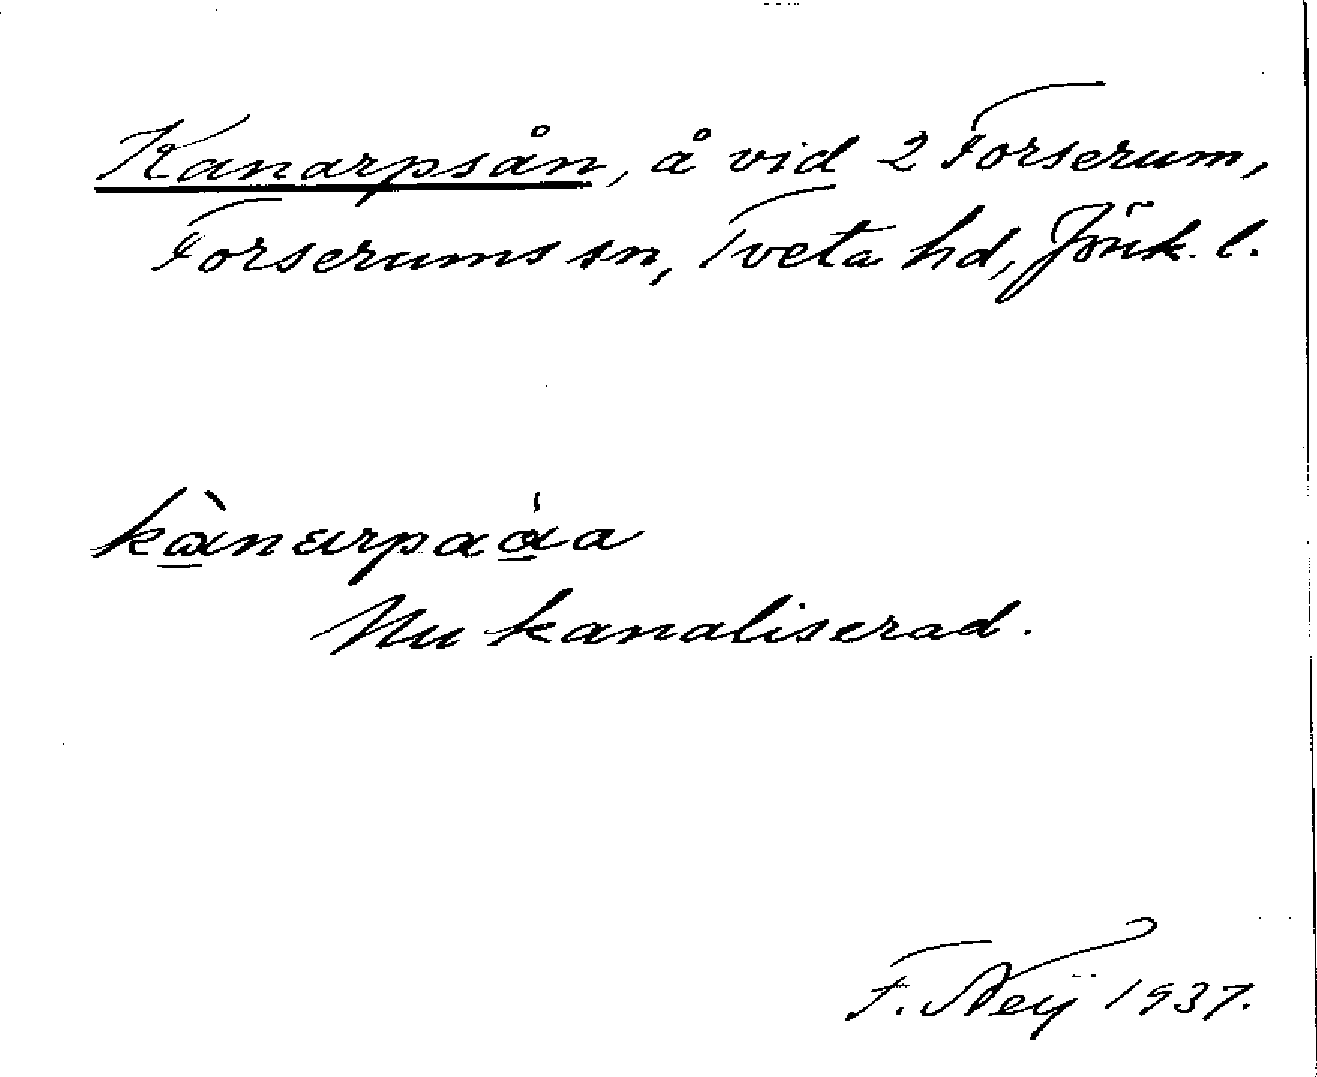 Kanarpsån, å vid 2 Forserum,
Forserums sn, Tveta hd, Jönk. l.
Nu kanaliserad.
F. Neij 1937.